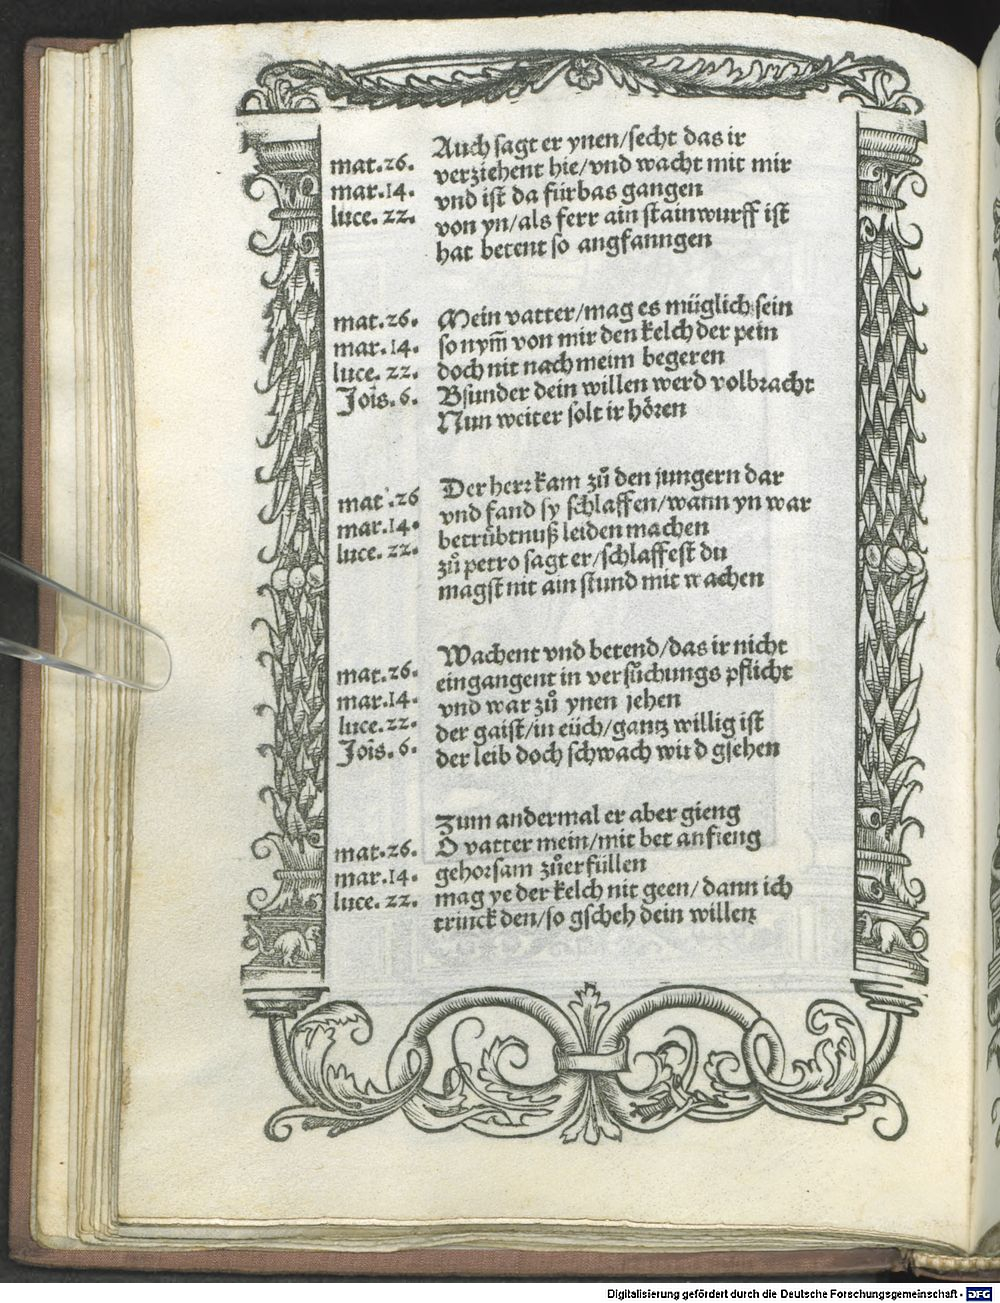 Auch sagt er ynen/secht das ir
mat.26. verziehent hie/vnd wacht mit mir
mar.14. vnd ist da fürbas gangen
luce. 22. von yn/als ferr ain stainwurff ist
hat betent so angfanngen
mat.26. Mein vatter/mag es müglich sein
mar.14. so nym̄ von mir den kelch der pein
luce. 22. doch nit nach meim begeren
Joīs. 6. Bsunder dein willen werd volbracht
Nun weiter solt ir hören
Der herr kam zů den jungern dar
mat.26 vnd fand sy schlaffen/wann yn war
mar.14. betrübtnuß leiden machen
luce. 22. zů petro sagt er/schlaffest du
magst nit ain stund mit wachen
Wachent vnd betend/das ir nicht
mat.26. eingangent in versůchungs pflicht
mar.14. vnd war zů ynen jehen
luce.22. der gaist/in eüch/gantz willig ist
Joīs. 6. der leib doch schwach wird gsehen
Zum andermal er aber gieng
mat.26. O vatter mein/mit bet anfieng
mar.14. gehorsam zůerfüllen
luce. 22. mag ye der kelch nit geen/dann ich
trinck den/so gscheh dein willen
Digitalisierung gefördert durch die Deutsche Forschungsgemeinschaft - DFG